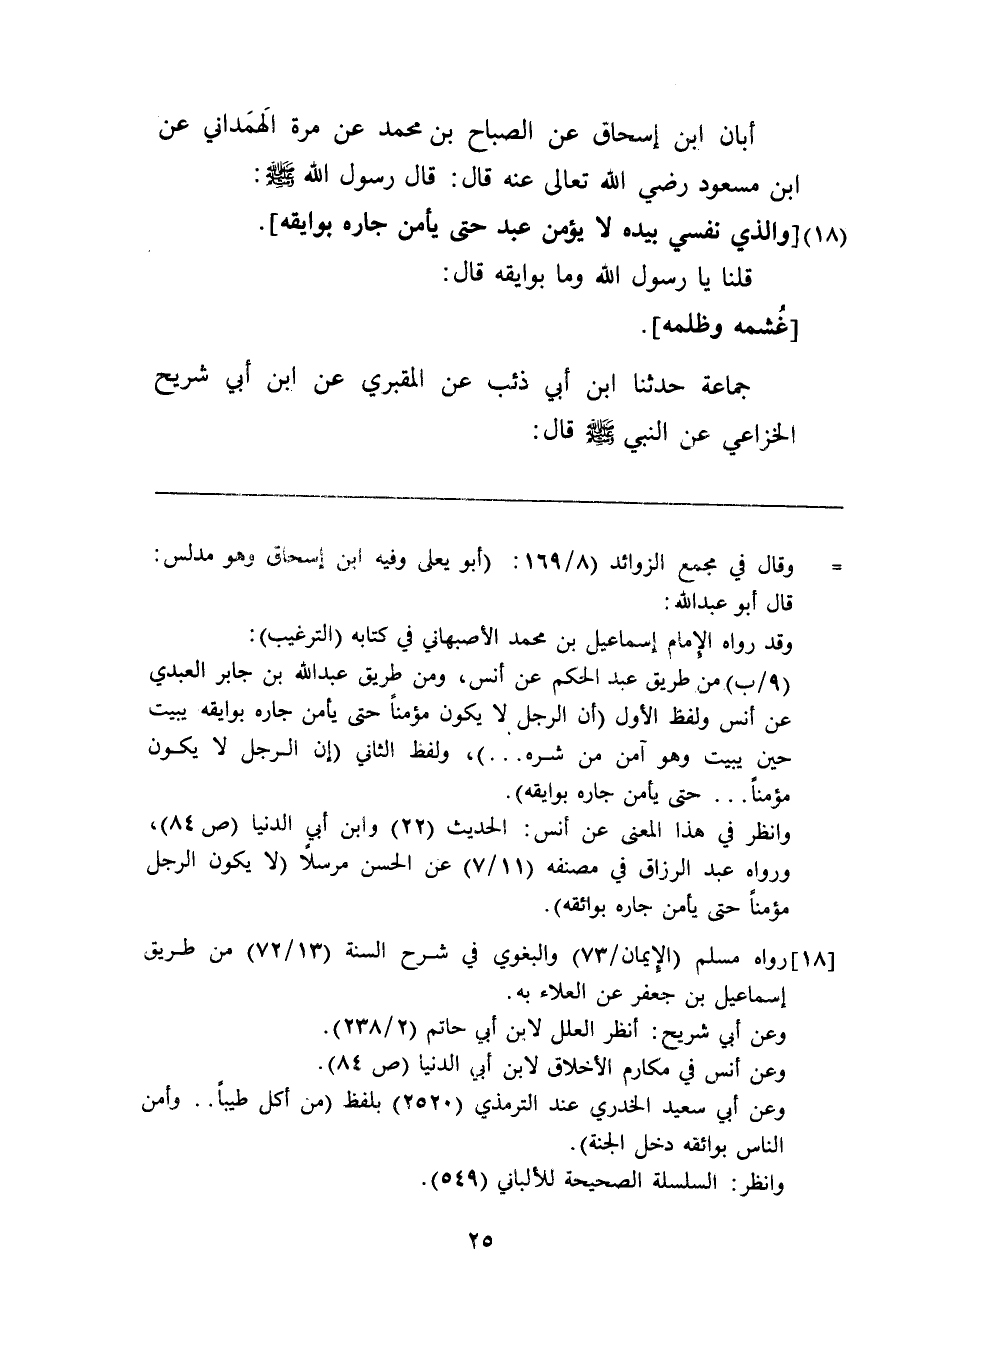 أبان ابن إسحاق عن الصباح بن محمد عن مرة الهَمَداني عن
ابن مسعود رضي الله تعالى عنه قال: قال رسول الله ﷺ:
(١٨)[والذي نفسي بيده لا يؤمن عبد حتى يأمن جاره بوايقه].
قلنا يا رسول الله وما بوايقه قال:
[غُشمه وظلمه].
جماعة حدثنا ابن أبي ذئب عن المقبري عن ابن أبي شريح
الخزاعي عن النبي ﷺ قال:
= وقال في مجمع الزوائد (١٦٩/٨: (أبو يعلى وفيه ابن إسحاق وهو مدلس:
قال أبو عبدالله:
وقد رواه الإمام إسماعيل بن محمد الأصبهاني في كتابه (الترغيب):
(٩/ب) من طريق عبد الحكم عن أنس، ومن طريق عبدالله بن جابر العبدي
عن أنس ولفظ الأول (أن الرجل لا يكون مؤمناً حتى يأمن جاره بوايقه يبيت
حين يبيت وهو آمن من شره...)، ولفظ الثاني (إن الرجل لا يكون
مؤمناً... حتى يأمن جاره بوايقه).
وانظر في هذا المعنى عن أنس: الحديث (٢٢) وابن أبي الدنيا (ص ٨٤)،
ورواه عبد الرزاق في مصنفه (٧/١١) عن الحسن مرسلاً (لا يكون الرجل
مؤمناً حتى يأمن جاره بوائقه).
[١٨] رواه مسلم (الإيمان/٧٣) والبغوي في شرح السنة (٧٢/١٣) من طريق
إسماعيل بن جعفر عن العلاء به.
وعن أبي شريح: أنظر العلل لابن أبي حاتم (٢٣٨/٢).
وعن أنس في مكارم الأخلاق لابن أبي الدنيا (ص ٨٤).
وعن أبي سعيد الخدري عند الترمذي (٢٥٢٠) بلفظ (من أكل طيباً.. وأمن
الناس بوائقه دخل الجنة).
وانظر: السلسلة الصحيحة للألباني (٥٤٩).
٢٥